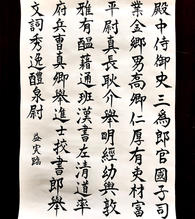 殿中侍御史三為郎官國子司
業金鄉男高卿仁厚有吏材富
平尉真長耿介舉明經幼輿敦
雅有醞藉通班漢書左清道率
府兵曹真卿舉進士校書郎舉
文詞秀逸醴泉尉
益实臨